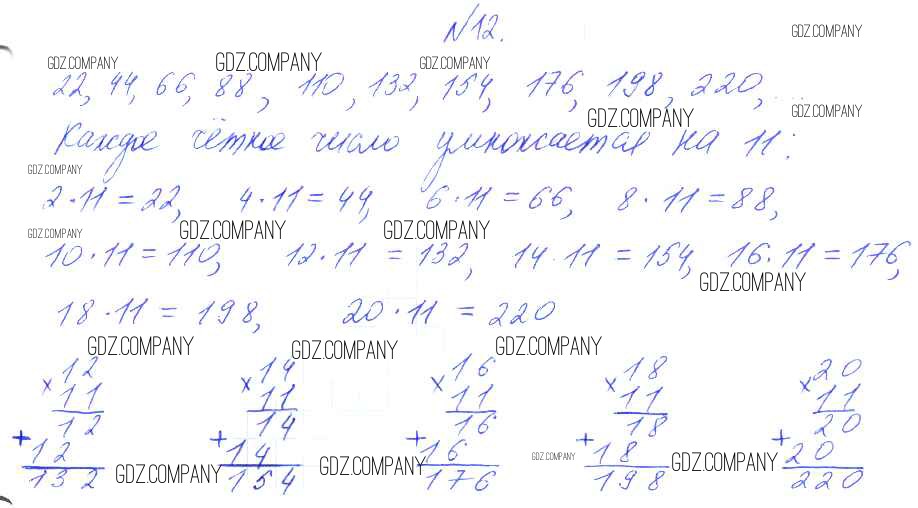 №12.
GDZ.COMPANY
GDZ.COMPANY GDZ.COMPANY GDZ.COMPANY
22, 44, 66, 88, 110, 132, 154, 176, 198, 220, ...
GDZ.COMPANY GDZ.COMPANY
Каждое чётное число умножается на 11:
GDZ.COMPANY
2·11=22, 4·11=44, 6·11=66, 8·11=88,
GDZ.COMPANY GDZ.COMPANY GDZ.COMPANY
10·11=110, 12·11=132, 14·11=154, 16·11=176,
GDZ.COMPANY
18·11=198, 20·11=220
GDZ.COMPANY GDZ.COMPANY GDZ.COMPANY
× 12 × 14 × 16 × 18 × 20
11 11 11 11 11
+ 12 + 14 + 16 + 18 + 20
12 14 16 18 20
132 154 176 198 220
GDZ.COMPANY GDZ.COMPANY GDZ.COMPANY GDZ.COMPANY